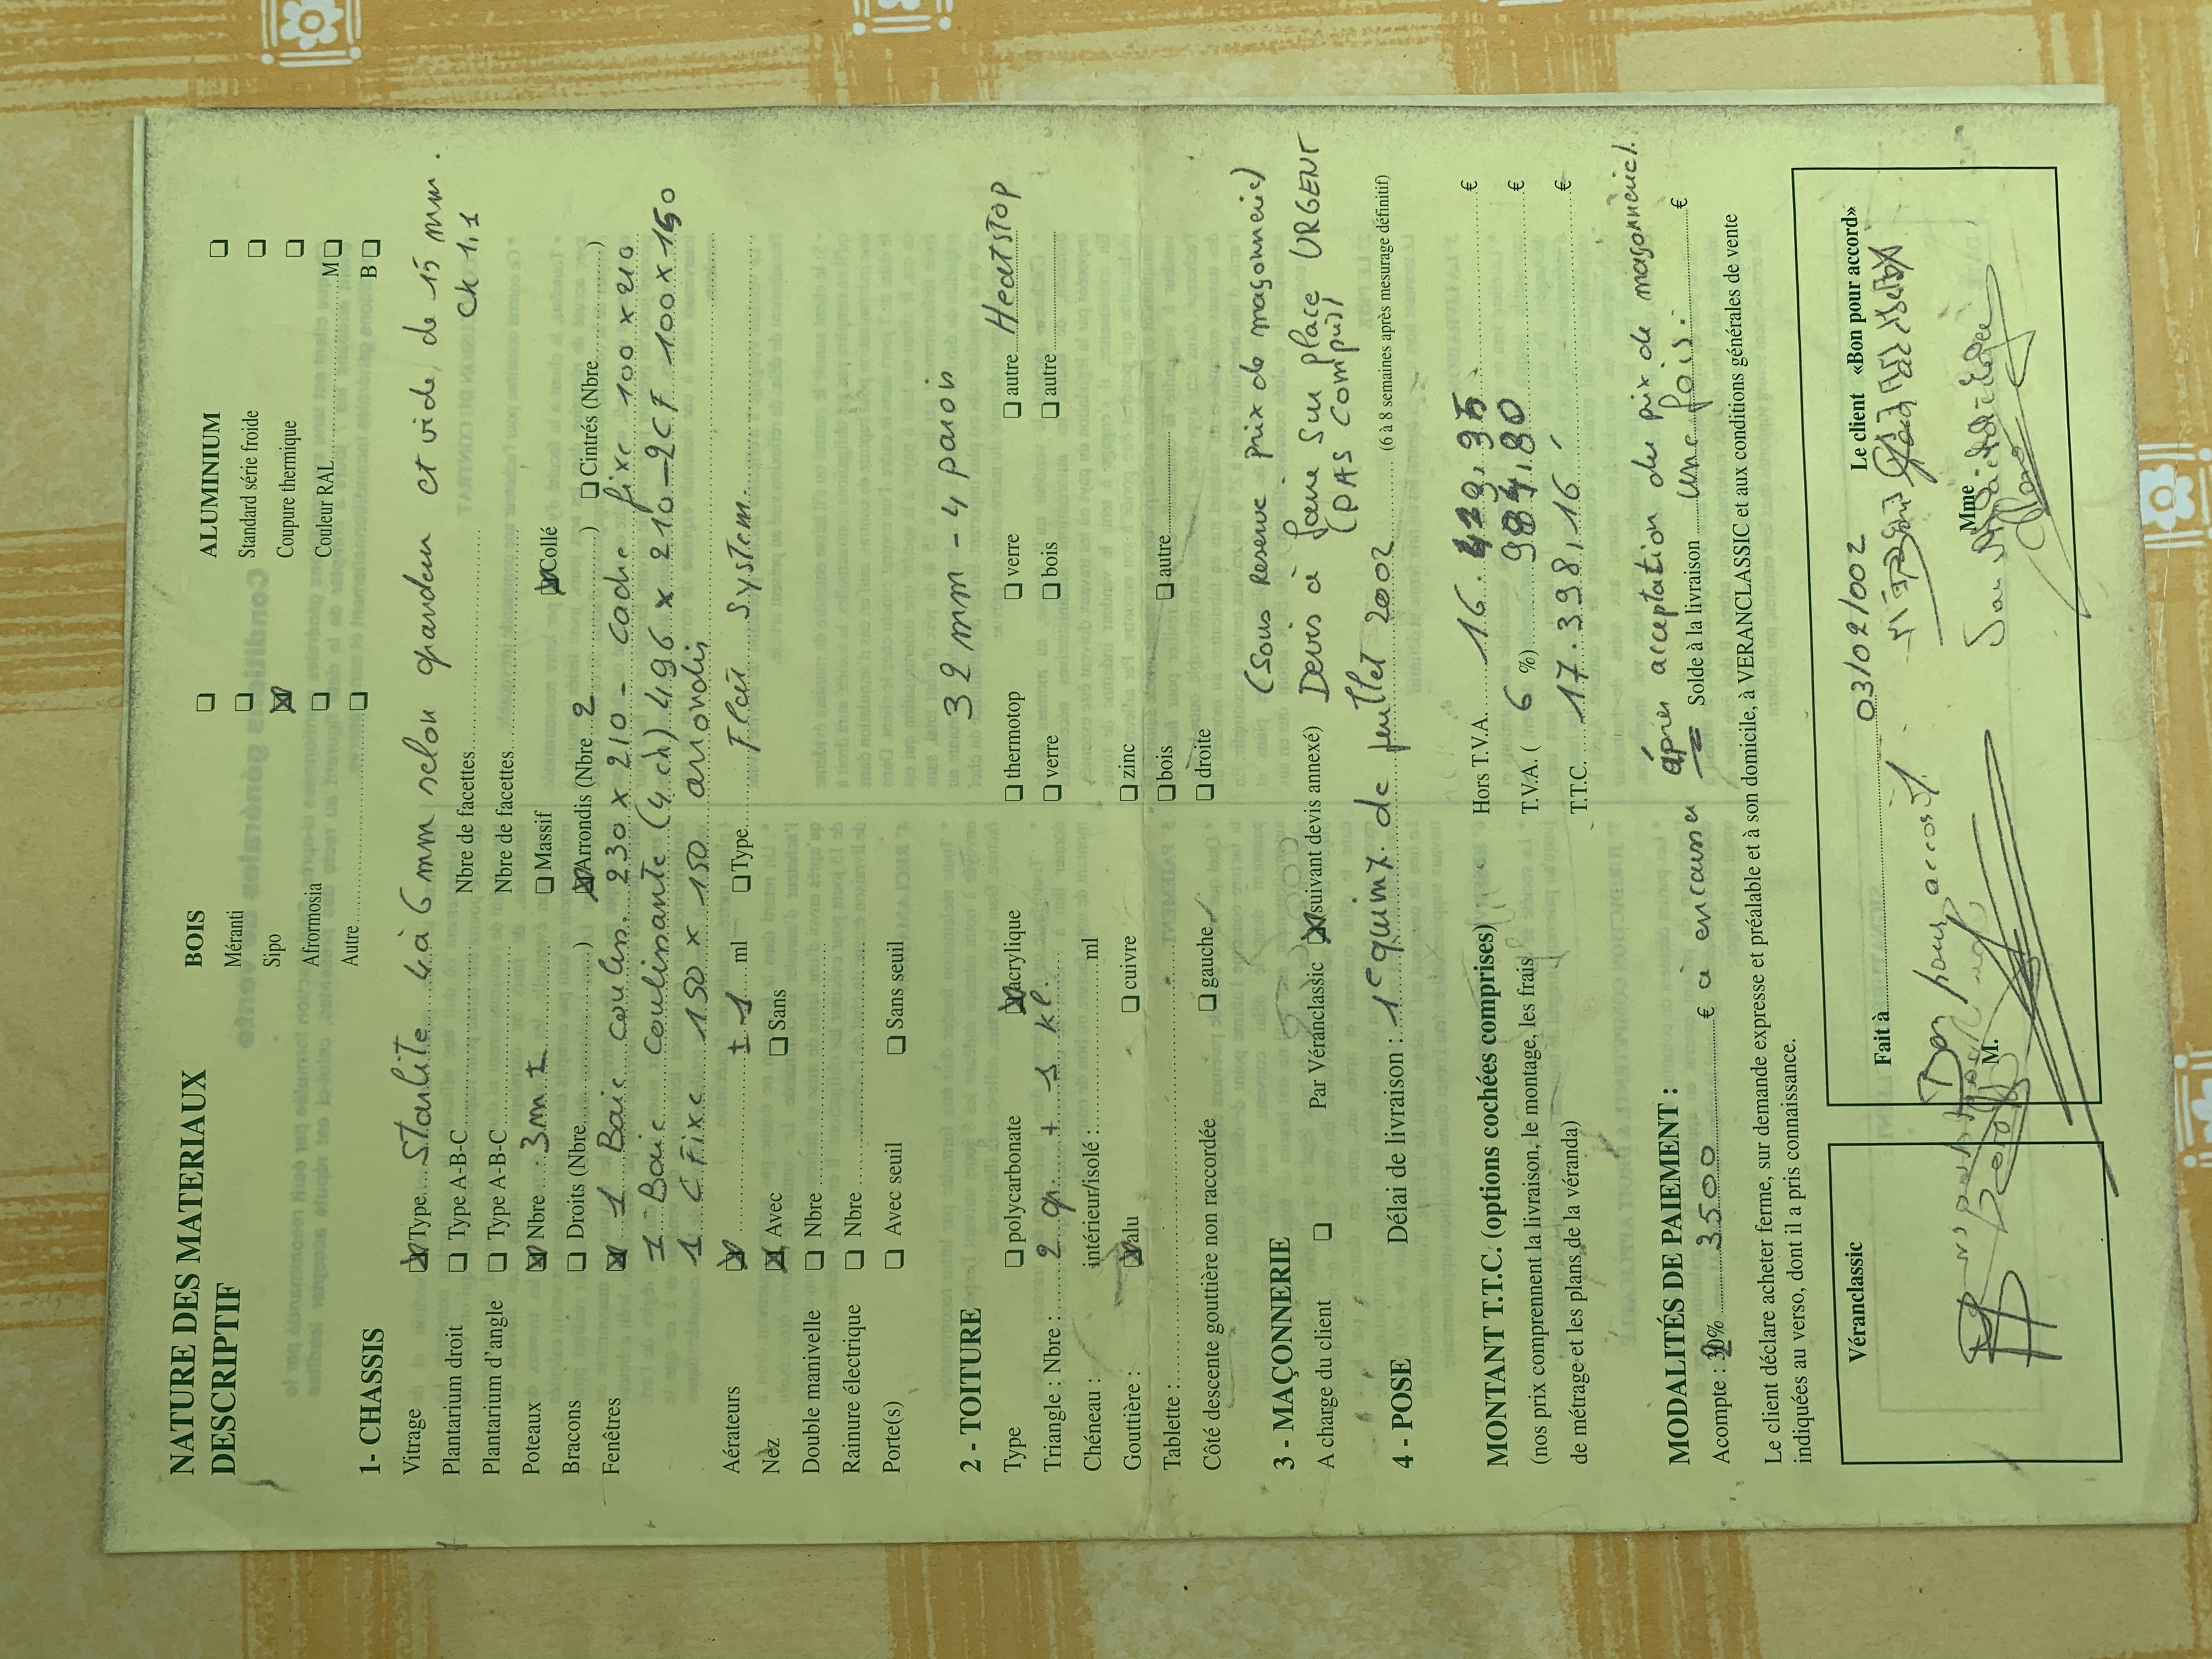 NATURE DES MATERIAUX
DESCRIPTIF
BOIS
ALUMINIUM
Méranti ☐
Standard série froide ☐
Sipo ☐
Coupure thermique ☒ ☐
Afrormosia ☐
Couleur RAL M ☐
Autre ☐
B ☐
1- CHASSIS
Vitrage ☒ Type Starlite 4 à 6 mm selon grandeur et vide de 15 mm.
CK 1,1
Plantarium droit ☐ Type A-B-C Nbre de facettes
Plantarium d'angle ☐ Type A-B-C Nbre de facettes
Poteaux ☒ Nbre 3m ± ☐ Massif ☒ Collé
Bracons ☐ Droits (Nbre ) ☒ Arrondis (Nbre 2 ) ☐ Cintrés (Nbre )
Fenêtres ☒ 1 Baie coulis. 230 x 210 - cadre fixe 100 x 210
1 Baie coulissante (4 ch) 496 x 210 - 2CF 100 x 150
1 C Fixe 150 x 150 arrondis
Aérateurs ☒ ± 1 ml ☐ Type Flat System
Nez ☒ Avec ☐ Sans
Double manivelle ☐ Nbre
Rainure électrique ☐ Nbre
Porte(s) ☐ Avec seuil ☐ Sans seuil
2 - TOITURE
32 mm - 4 parois
Type ☐ polycarbonate ☒ acrylique ☐ thermotop ☐ verre ☐ autre Heatstop
Triangle : Nbre : 2 ☐ verre ☐ bois ☐ autre
Chéneau : intérieur/isolé : ml
Gouttière : ☒ alu ☐ cuivre ☐ zinc
Tablette : ☐ bois ☐ autre
Côté descente gouttière non raccordée ☐ gauche ☐ droite
(Sous Reserve prix de maçonnerie)
3 - MAÇONNERIE
A charge du client ☐ Par Véranclassic ☒ (suivant devis annexé) Devis à faire sur place URGENT
(PAS Compris)
4 - POSE Délai de livraison : 1e quinz. de juillet 2002 (6 à 8 semaines après mesurage définitif)
MONTANT T.T.C. (options cochées comprises) Hors T.V.A. 16. €
(nos prix comprennent la livraison, le montage, les frais T.V.A. ( 6 %) 984,80 €
de métrage et les plans de la véranda) T.T.C. 17.398,16 €
MODALITÉS DE PAIEMENT : après acceptation du prix de maçonnerie.
Acompte : % 3500 € à encaisser Solde à la livraison une fois. €
Le client déclare acheter ferme, sur demande expresse et préalable et à son domicile, à VERANCLASSIC et aux conditions générales de vente
indiquées au verso, dont il a pris connaissance.
Véranclassic
Fait à 03/02/002 Le client «Bon pour accord»
Bon pour accord
M. Mme